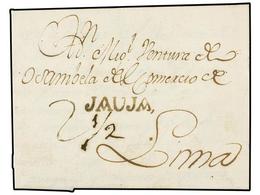 A Dn. Migl. Ventura de
Osambela del Comercio de
JAUJA,
2 1/2
Lima